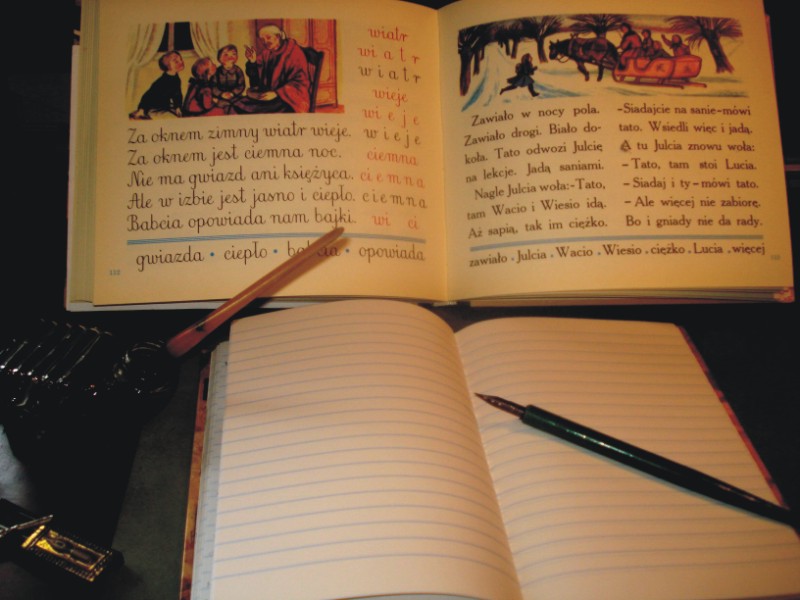 Za oknem zimny wiatr wieje.
Za oknem jest ciemna noc.
Nie ma gwiazd ani księżyca.
Ale w izbie jest jasno i ciepło.
Babcia opowiada nam bajki.
wiatr
wi a t r
w i a t r
wieje
wi e j e
w i e j e
ciemna
ci e m n a
c i e m n a
wi ci
gwiazda • ciepło • babcia • opowiada
Zawiało w nocy pola.
Zawiało drogi. Biało do-
koła. Tato odwozi Julcię
na lekcje. Jadą saniami.
Nagle Julcia woła: - Tato,
tam Wacio i Wiesio idą.
Aż sapią, tak im ciężko.
-Siadajcie na sanie-mówi
tato. Wsiedli więc i jadą.
A tu Julcia znowu woła:
- Tato, tam stoi Lucia.
- Siadaj i ty - mówi tato.
- Ale więcej nie zabiorę.
Bo i gniady nie da rady.
zawiało • Julcia • Wacio • Wiesio • ciężko • Lucia • więcej